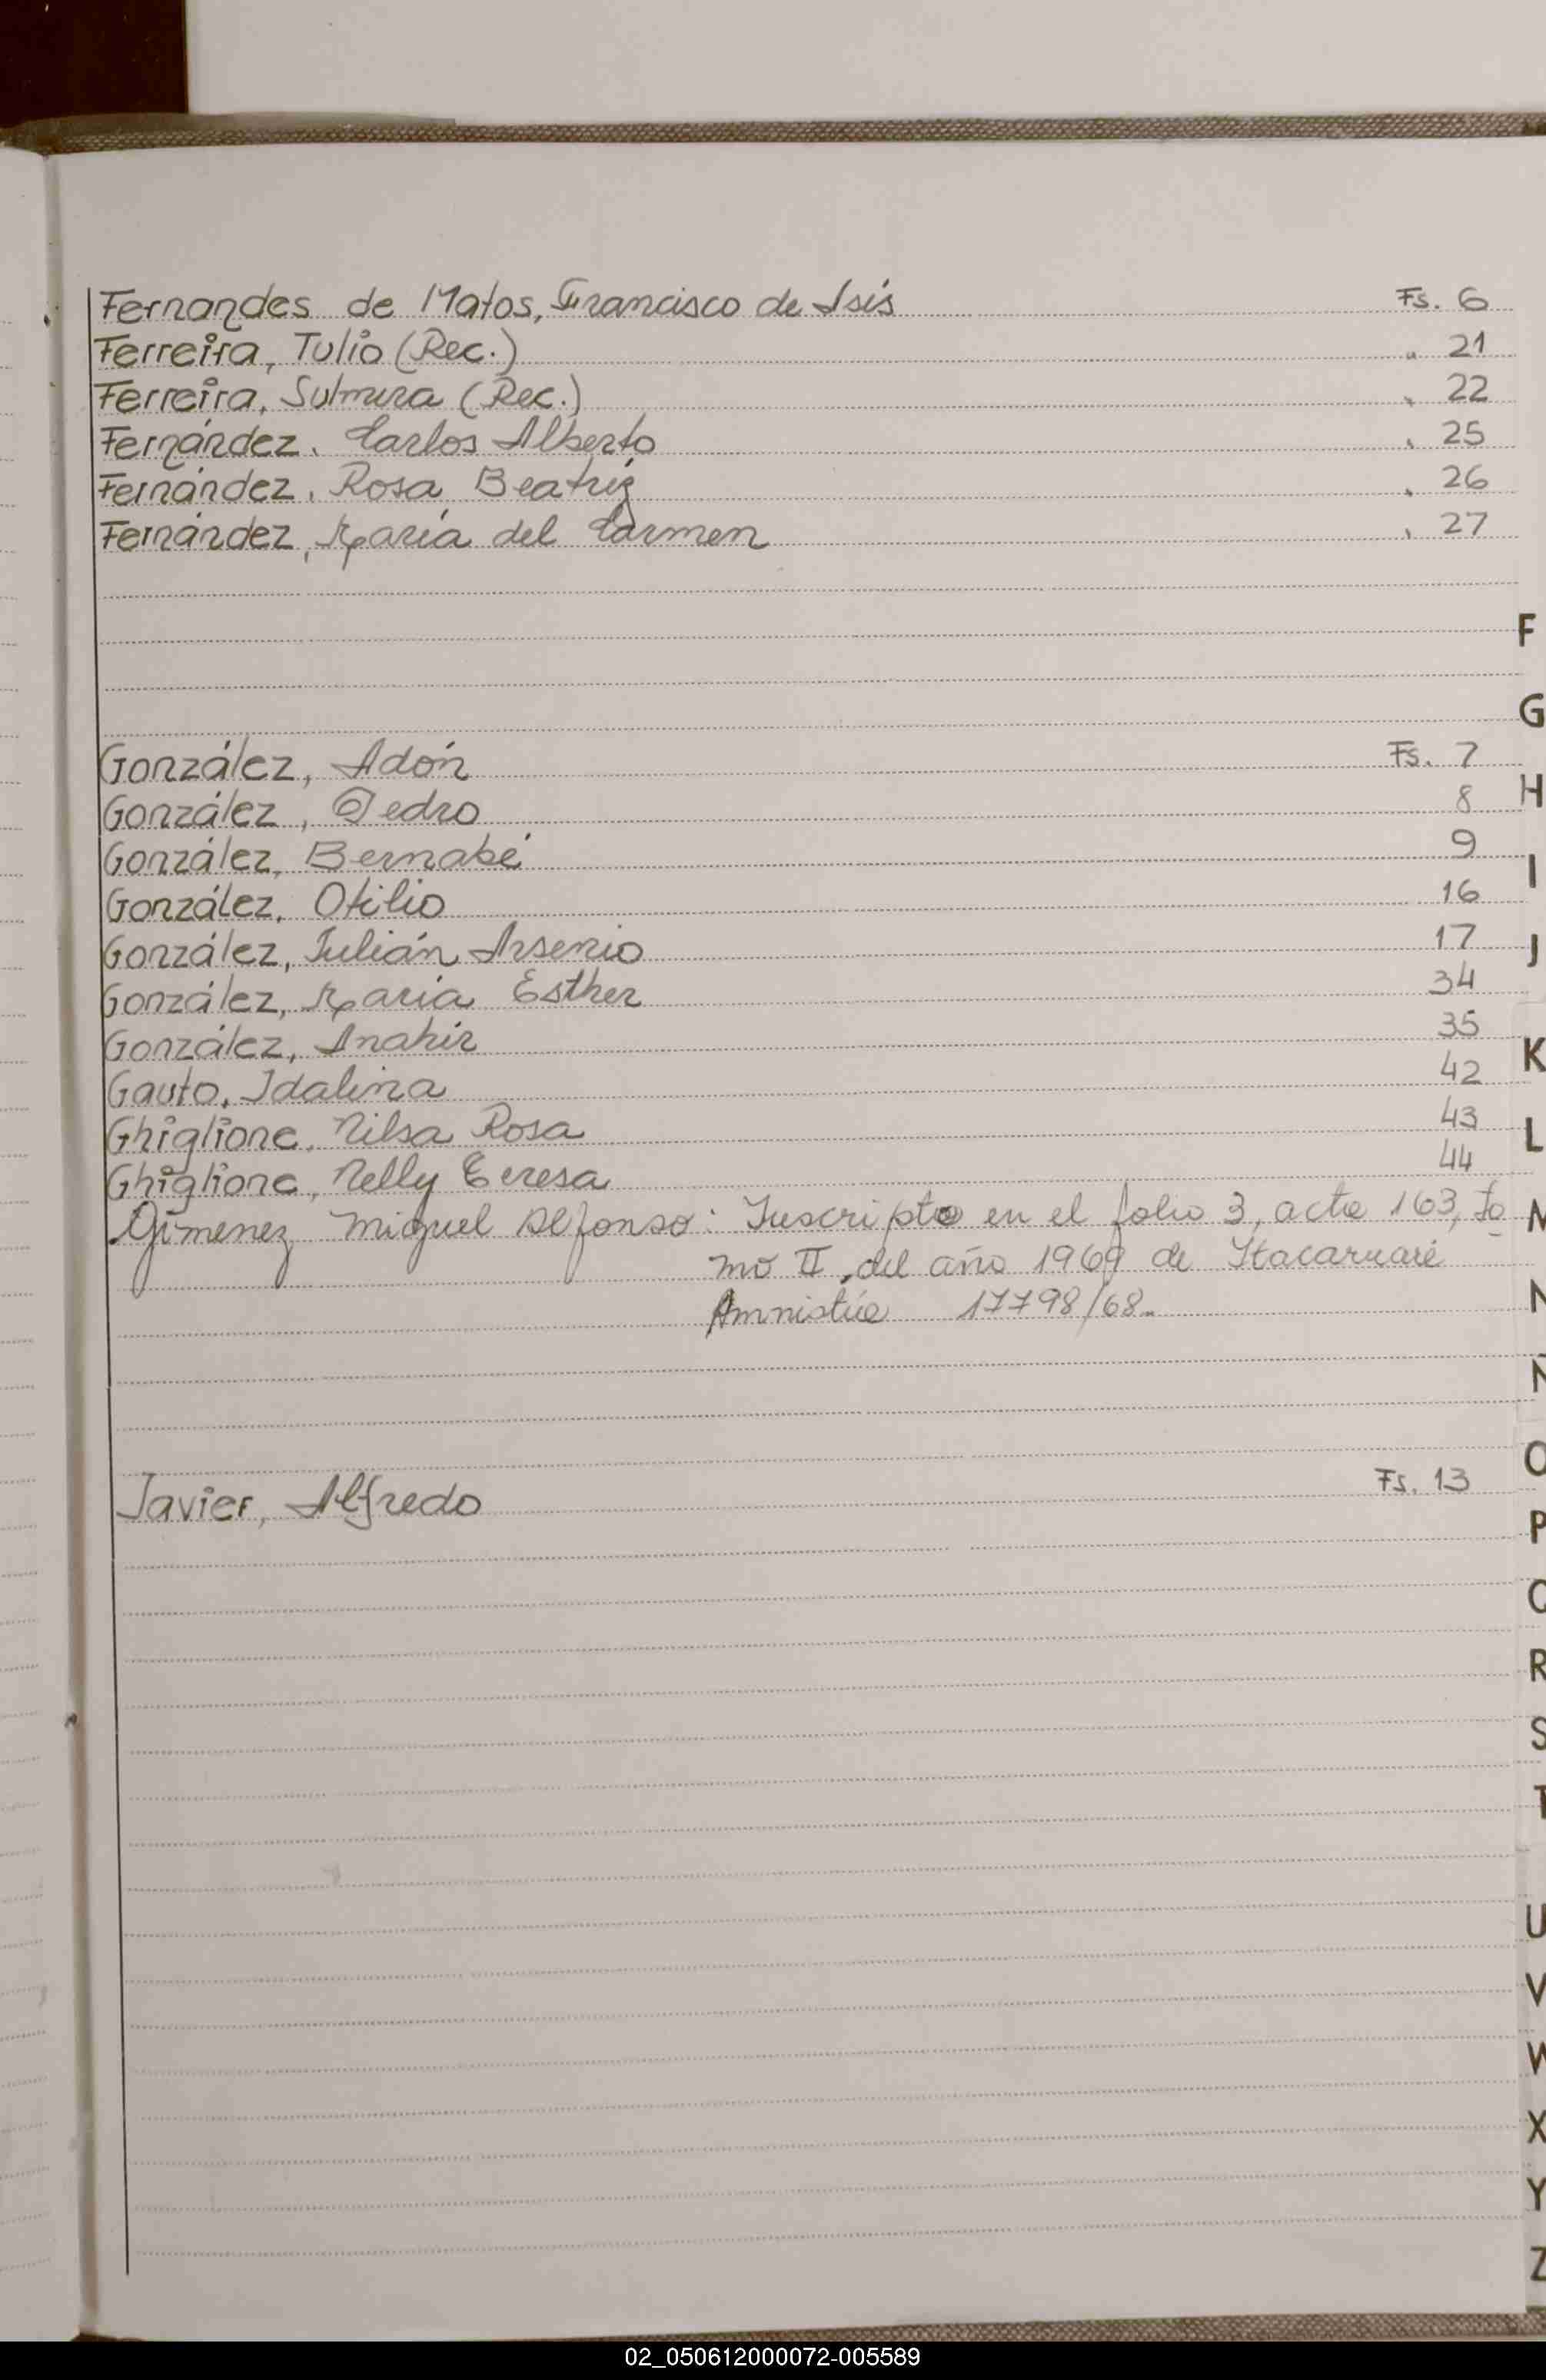 Fernandes de Matos, Francisco de Asís Fs. 6
Ferreira, Tulio (Rec.) " 21
Ferreira, Sulmira (Rec.) " 22
Fernández, Carlos Alberto " 25
Fernández, Rosa Beatriz " 26
Fernández, María del Carmen " 27
F
G
González, Adón Fs. 7
González, Pedro 8
H
González, Bernabé 9
I
González, Otilio 16
González, Julián Arsenio 17
J
González, María Esther 34
González, Anahir 35
K
Gauto, Idalina 42
Ghiglione, Nilsa Rosa 43
L
Ghiglione, Nelly Teresa 44
Gimenez Miguel Alfonso: Inscripto en el folio 3, acta 163, to
M
mo II, del año 1969 de Itacaruaré
N
Amnistía 17798/68.
Ñ
O
Javier, Alfredo Fs. 13
P
Q
R
S
T
U
V
W
X
Y
Z
02_050612000072-005589